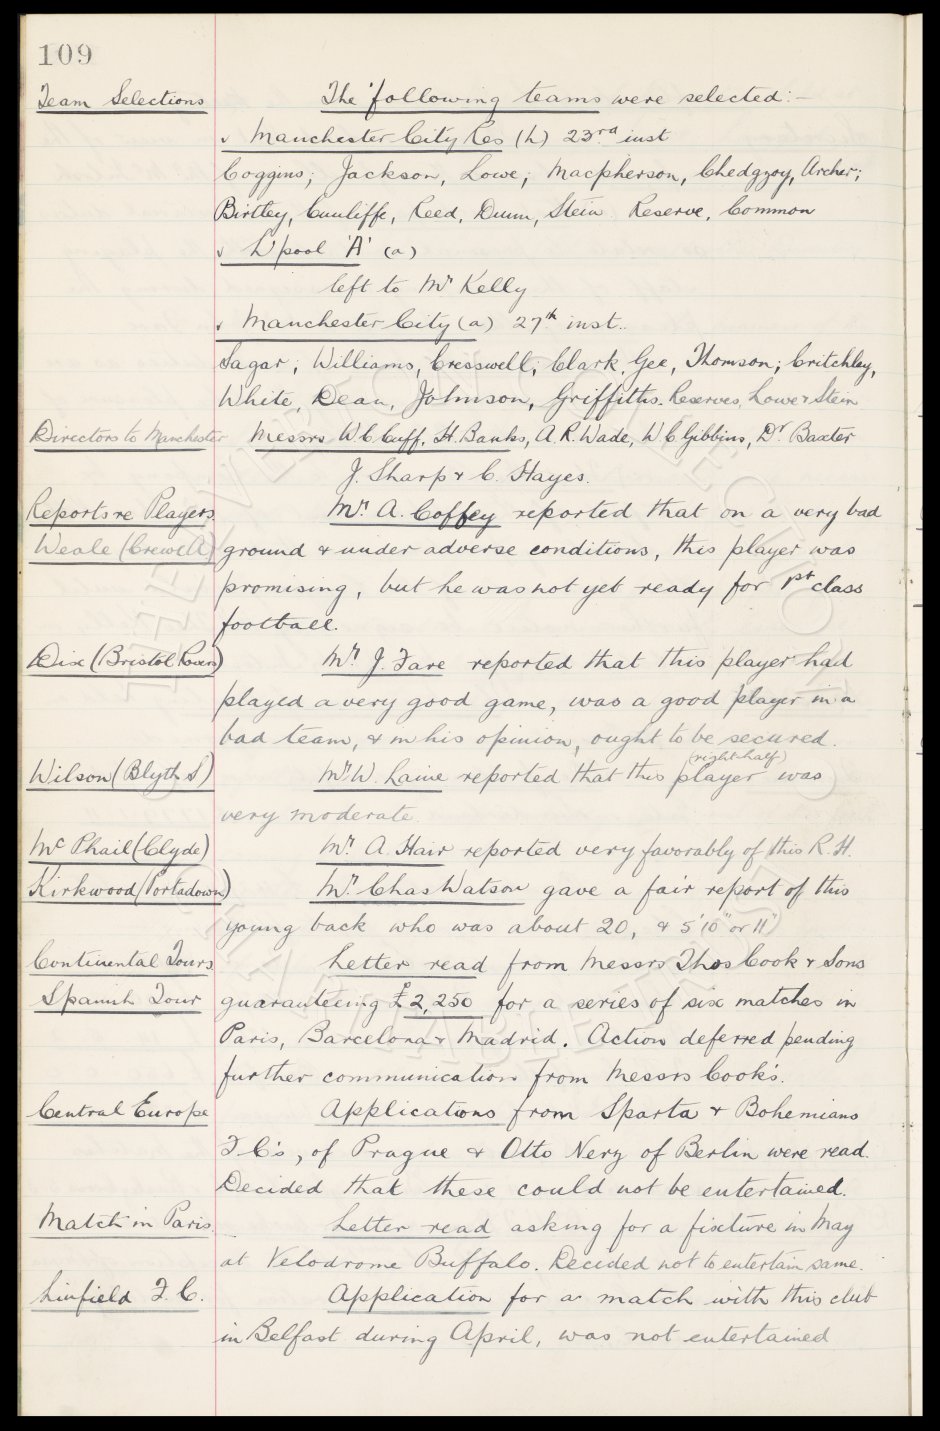 109
Team Selections The following teams were selected:-
Manchester City Res (h) 23rd inst
Coggins; Jackson, Lowe; Macpherson, Chedgzoy, Archer;
Birtley, Cunliffe, Reed, Dunn, Stein Reserve, Common
L'pool 'A' (a)
left to Mr Kelly
Manchester City (a) 27th inst.
Sagar; Williams, Cresswell; Clark, Gee, Thomson; Critchley,
White, Dean, Johnson, Griffiths. Reserves, Lowe & Stein
Directors to Manchester Messrs W.C. Cuff, H. Banks, A.R. Wade, W.C. Gibbins, Dr Baxter
J. Sharp & C. Hayes.
Reports re Players Mr. A. Coffey reported that on a very bad
Weale (Crewe A.) ground & under adverse conditions, this player was
promising, but he was not yet ready for 1st class
football.
Dix (Bristol Rovers) Mr J. Fare reported that this player had
played a very good game, was a good player in a
bad team, & in his opinion, ought to be secured.
Wilson (Blyth S) Mr W. Laine reported that this player (right half) was
very moderate.
Mc Phail (Clyde) Mr. A. Hair reported very favorably of this R.H.
Kirkwood (Portadown) Mr. Chas Watson gave a fair report of this
young back who was about 20, & 5'10" or 11"
Continental Tours Letter read from Messrs Thos Cook & Sons
Spanish Tour guaranteeing £2,250 for a series of six matches in
Paris, Barcelona & Madrid. Action deferred pending
further communication from Messrs Cook's.
Central Europe Applications from Sparta & Bohemians
F.C's, of Prague & Otto Nerz of Berlin were read.
Decided that these could not be entertained.
Match in Paris. Letter read asking for a fixture in May
at Velodrome Buffalo. Decided not to entertain same.
Linfield F.C. Application for a match with this club
in Belfast during April, was not entertained